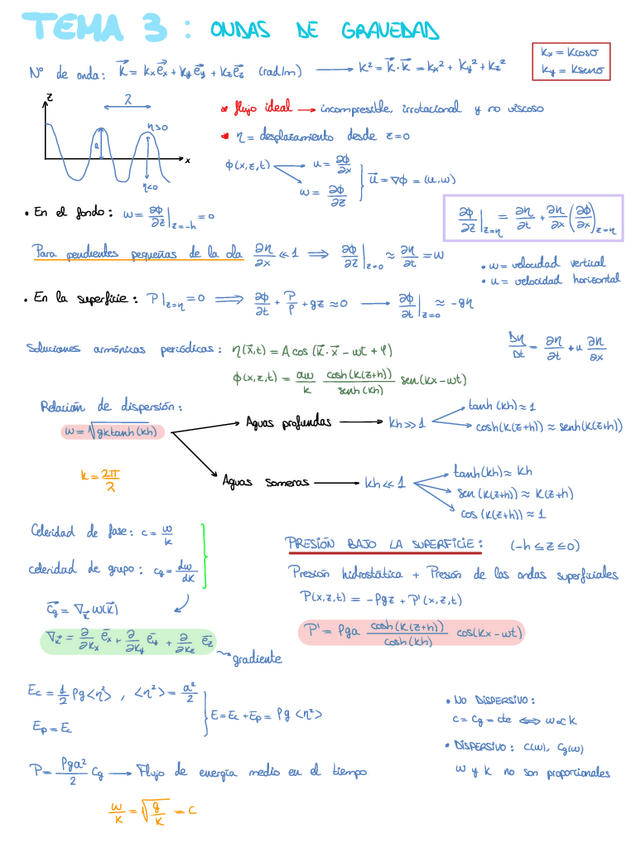 TEMA 3: ONDAS DE GRAVEDAD
Kx = Kcosσ
Ky = Ksenσ
Nº de onda: K⃗ = kx e⃗x + ky e⃗y + kz e⃗z (rad/m) ⟶ K² = K⃗·K⃗ = Kx² + Ky² + Kz²
z
λ
η>0
a
x
η<0
* flujo ideal ⟶ incompresible, irrotacional y no viscoso
* η = desplazamiento desde z=0
ϕ(x,z,t) u = ∂ϕ/∂x
w = ∂ϕ/∂z
u⃗ = ∇ϕ = (u,w)
• En el fondo: w = ∂ϕ/∂z|z=-h = 0
∂ϕ/∂z|z=η = ∂η/∂t + ∂η/∂x (∂ϕ/∂x)z=η
Para pendientes pequeñas de la ola ∂η/∂x ≪ 1 ⟹ ∂ϕ/∂z|z=0 ≈ ∂η/∂t = w
• w = velocidad vertical
• u = velocidad horizontal
• En la superficie: P|z=η = 0 ⟹ ∂ϕ/∂t + P/ρ + gz ≈ 0 ⟶ ∂ϕ/∂t|z=0 ≈ -gη
Soluciones armónicas periódicas: η(x⃗,t) = A cos (K⃗·x⃗ - wt + φ)
Dη/Dt = ∂η/∂t + u ∂η/∂x
ϕ(x,z,t) = aw/k cosh(K(z+h))/senh(Kh) sen(Kx-wt)
Relación de dispersión:
w = √gktanh(kh)
Aguas profundas ⟶ kh ≫ 1
tanh(kh) ≈ 1
cosh(K(z+h)) ≈ senh(K(z+h))
k = 2π/λ
Aguas someras ⟶ kh ≪ 1
tanh(kh) ≈ kh
sen(K(z+h)) ≈ K(z+h)
cos(K(z+h)) ≈ 1
Celeridad de fase: c = w/k
celeridad de grupo: cg = dw/dK
c⃗g = ∇k⃗ w(K⃗)
∇k⃗ = ∂/∂kx e⃗x + ∂/∂ky e⃗y + ∂/∂kz e⃗z
gradiente
PRESIÓN BAJO LA SUPERFICIE: (-h ≤ z ≤ 0)
Presión hidrostática + Presión de las ondas superficiales
P(x,z,t) = -ρgz + P'(x,z,t)
P' = ρga cosh(K(z+h))/cosh(kh) cos(Kx-wt)
Ec = 1/2 ρg<η²>, <η²> = a²/2
Ep = Ec
E = Ec + Ep = ρg <η²>
P = ρga²/2 cg ⟶ Flujo de energía medio en el tiempo
w/k = √g/k = c
• NO DISPERSIVO:
c = cg = cte ⟺ w∝k
• DISPERSIVO: c(w), cg(w)
w y k no son proporcionales